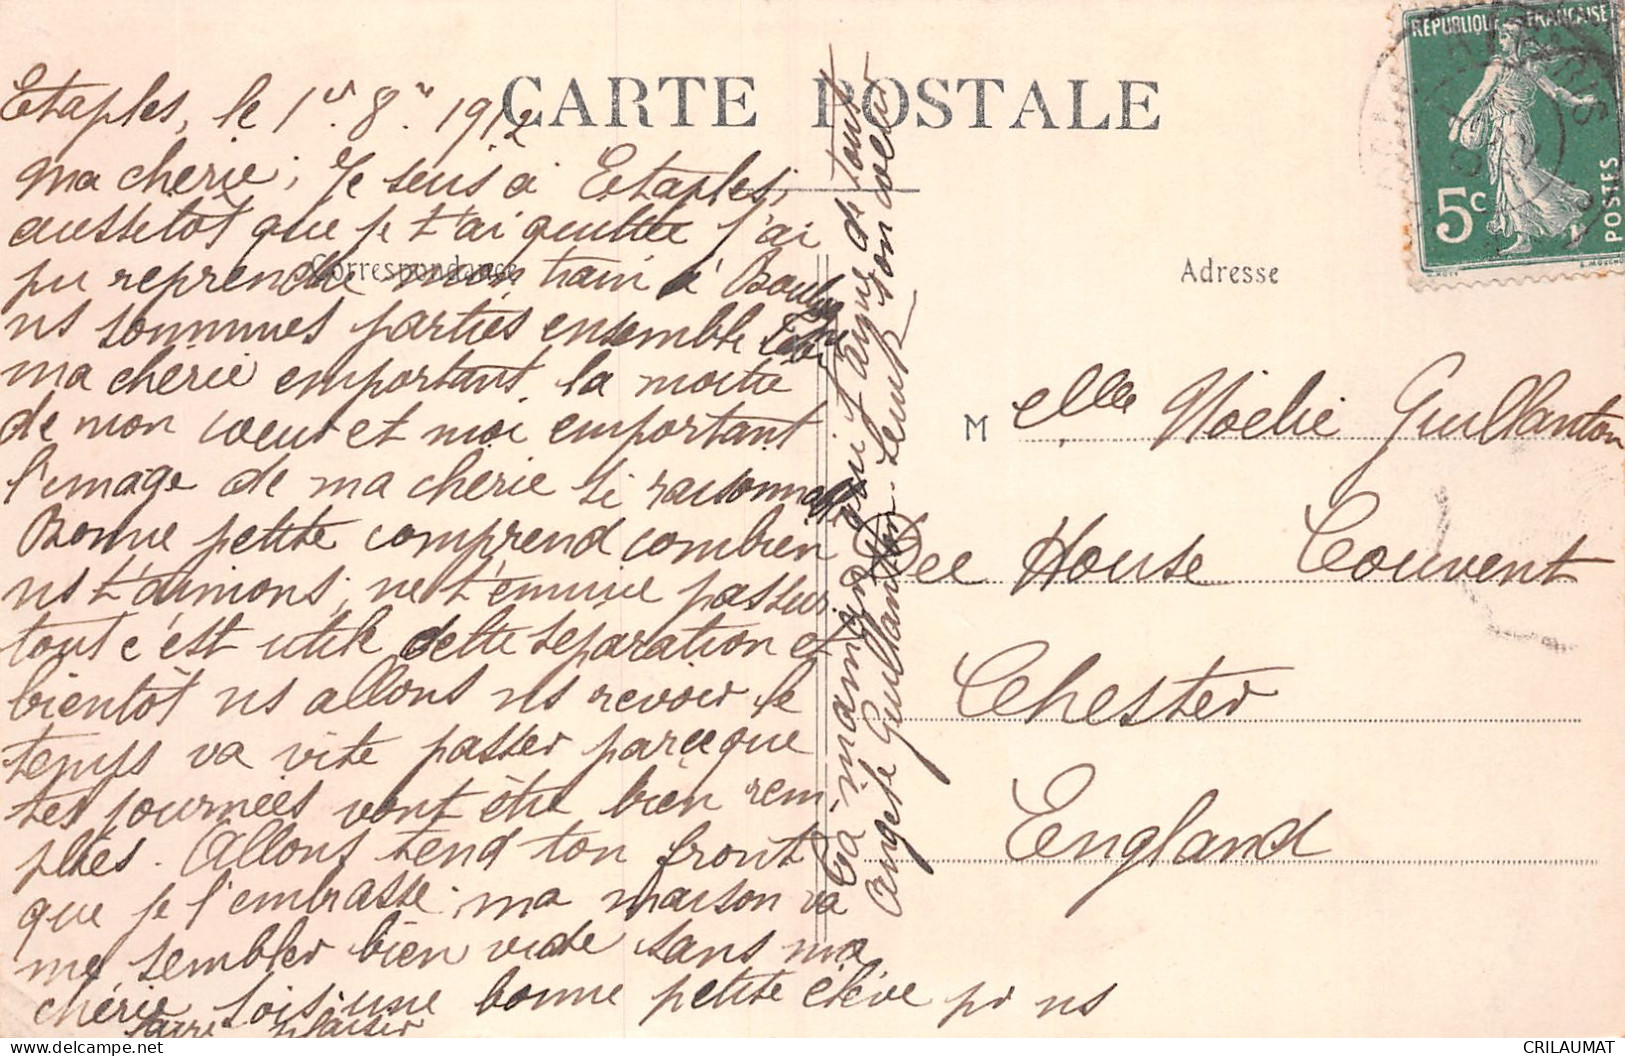 CARTE POSTALE
Etaples, le 1er 8re 1912
Ma chérie ; Je suis à Etaples,
aussitôt que je t'ai quittée j'ai
pu reprendre mon train à Boulogne
ns sommes parties ensemble
ma chérie emportant la moitié
de mon coeur et moi emportant
l'image de ma chérie si raisonnable
Bonne petite comprend combien
ns t'aimons, ne t'ennuie pas sur
tout c'est utile cette séparation et
bientôt ns allons ns revoir le
temps va vite passer parce que
tes journées vont être bien rem
plies. Allons tend ton front
que je l'embrasse. ma maison va
me sembler bien vide sans ma
chérie sois une bonne petite élève pr ns
faire plaisir
Ta maman qui t'aime de tout
son coeur
Angèle Guillanton
Correspondance
Adresse
M elle Noëlie Guillanton
Dee House Couvent
Chester
England
REPUBLIQUE FRANCAISE
5c
POSTES
delcampe.net
CRILAUMAT